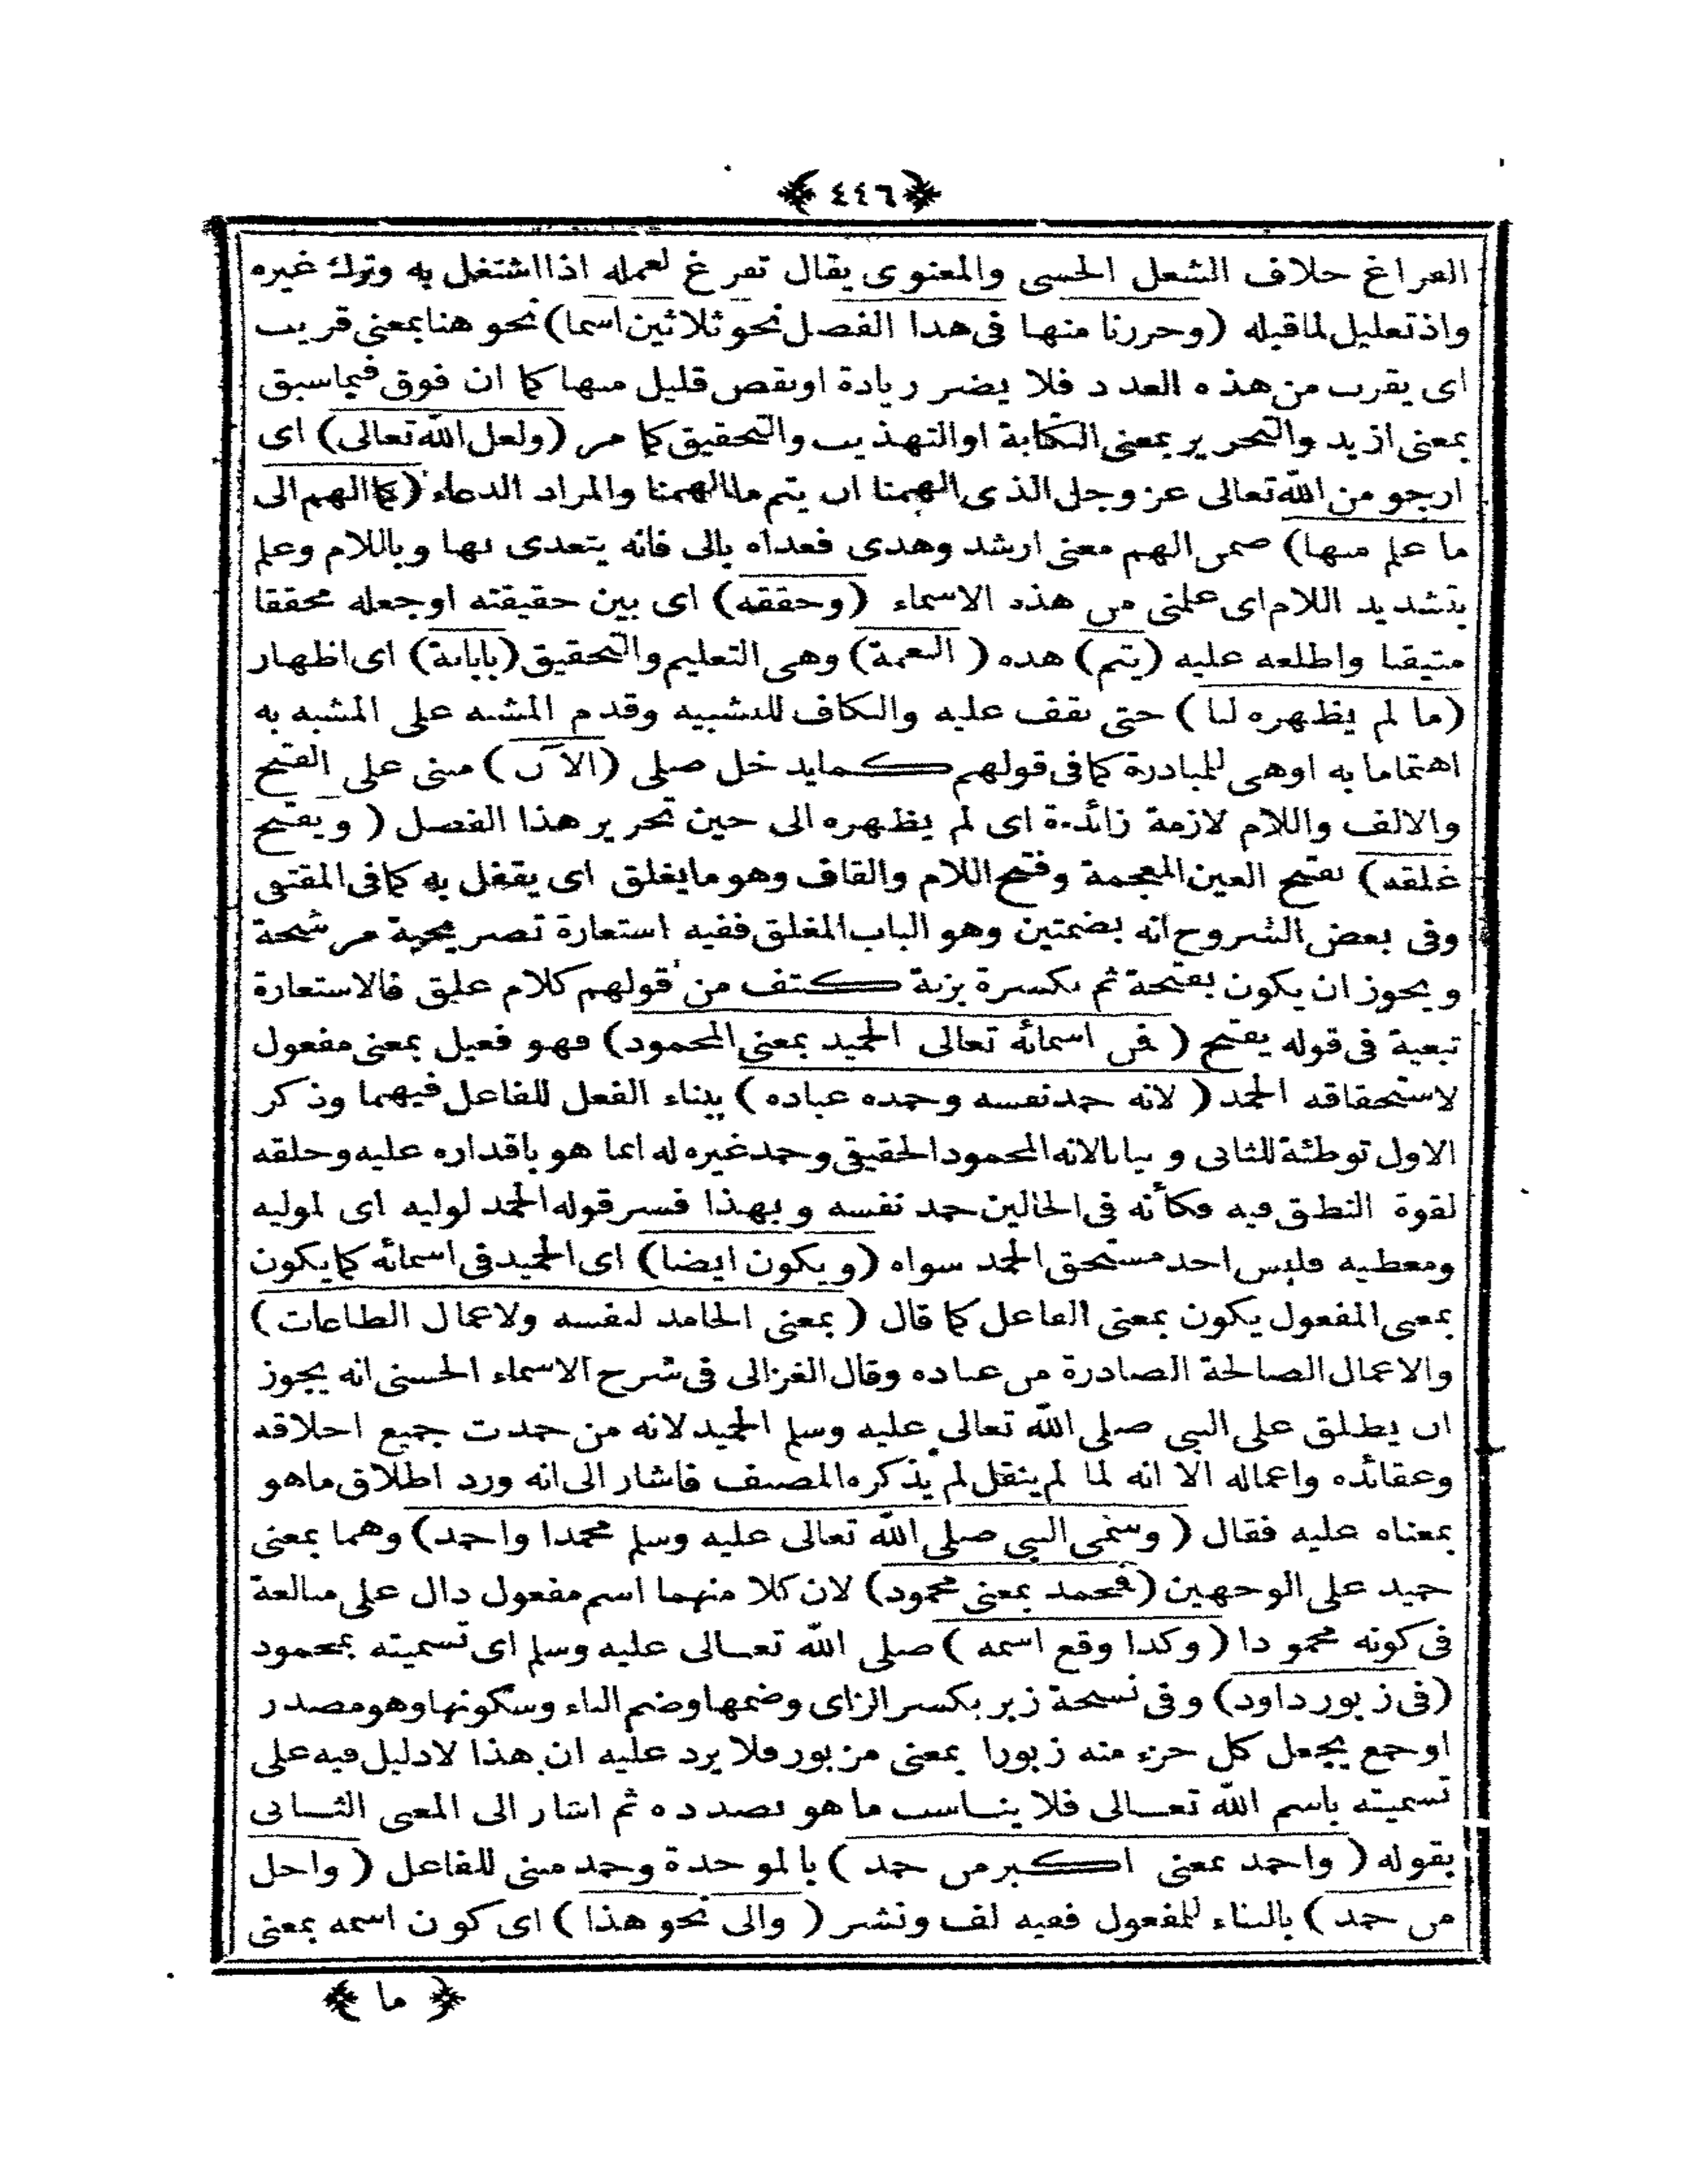 ﴿٤٤٦﴾
الفراغ خلاف الشغل الحسى والمعنوى يقال تفرغ لعمله اذا اشتغل به وترك غيره
واذ تعليل لما قبله (وحررنا منها فى هذا الفصل نحو ثلاثين اسما) نحو هنا بمعنى قريب
اى يقرب من هذه العدد فلا يضر زيادة او نقص قليل منها كما ان فوق فيما سبق
بمعنى ازيد والتحرير بمعنى الكتابة او التهذيب والتحقيق كما مر (ولعل الله تعالى) اى
ارجو من الله تعالى عز وجل الذى الهمنا ان يتم ما الهمنا والمراد الدعاء (كما الهم الى
ما علم منها) ضمن الهم معنى ارشد وهدى فعداه بالى فانه يتعدى بها وباللام وعلم
بتشديد اللام اى علمنى من هذه الاسماء (وحققه) اى بين حقيقته او جعله محققا
متيقنا واطلعه عليه (يتم) هذه (النعمة) وهى التعليم والتحقيق (بابانة) اى اظهار
(ما لم يظهره لنا) حتى نقف عليه والكاف للتشبيه وقدم المشبه على المشبه به
اهتماما به او هى للمبادرة كما فى قولهم كما يدخل صلى (الآن) مبنى على الفتح
والالف واللام لازمة زائدة اى لم يظهره الى حين تحرير هذا الفصل (ويفتح
غلقه) بفتح الغين المعجمة وفتح اللام والقاف وهو ما يغلق اى يقفل به كما فى المقتفى
وفى بعض الشروح انه بضمتين وهو الباب المغلق ففيه استعارة تصريحية مرشحة
ويجوز ان يكون بفتحة ثم بكسرة بزنة كتف من قولهم كلام غلق فالاستعارة
تبعية فى قوله يفتح (فمن اسمائه تعالى الحميد بمعنى المحمود) فهو فعيل بمعنى مفعول
لاستحقاقه الحمد (لانه حمد نفسه وحمده عباده) ببناء الفعل للفاعل فيهما وذكر
الاول توطئة للثانى وبيانا لانه المحمود الحقيقى وحمد غيره له انما هو باقداره عليه وخلقه
لقوة النطق فيه فكأنه فى الحالين حمد نفسه وبهذا فسر قوله الحمد لوليه اى لموليه
ومعطيه فليس احد مستحق الحمد سواه (ويكون ايضا) اى الحميد فى اسمائه كما يكون
بمعنى المفعول يكون بمعنى الفاعل كما قال (بمعنى الحامد لنفسه ولاعمال الطاعات)
والاعمال الصالحة الصادرة من عباده وقال الغزالى فى شرح الاسماء الحسنى انه يجوز
ان يطلق على النبى صلى الله تعالى عليه وسلم الحميد لانه من حمدت جميع اخلاقه
وعقائده واعماله الا انه لما لم ينقل لم يذكره المصنف فاشار الى انه ورد اطلاق ما هو
بمعناه عليه فقال (وسمى النبى صلى الله تعالى عليه وسلم محمدا واحمد) وهما بمعنى
حميد على الوجهين (فمحمد بمعنى محمود) لان كلا منهما اسم مفعول دال على مبالغة
فى كونه محمودا (وكذا وقع اسمه) صلى الله تعالى عليه وسلم اى تسميته بمحمود
(فى زبور داود) وفى نسخة زبر بكسر الزاى وضمها وضم الباء وسكونها وهو مصدر
او جمع بجعل كل جزء منه زبورا بمعنى مزبور فلا يرد عليه ان هذا لا دليل فيه على
تسميته باسم الله تعالى فلا يناسب ما هو بصدده ثم اشار الى المعنى الثانى
بقوله (واحمد بمعنى اكبر من حمد) بالموحدة وحمد مبنى للفاعل (واجل
من حمد) بالبناء للمفعول ففيه لف ونشر (والى نحو هذا) اى كون اسمه بمعنى
﴿ما﴾